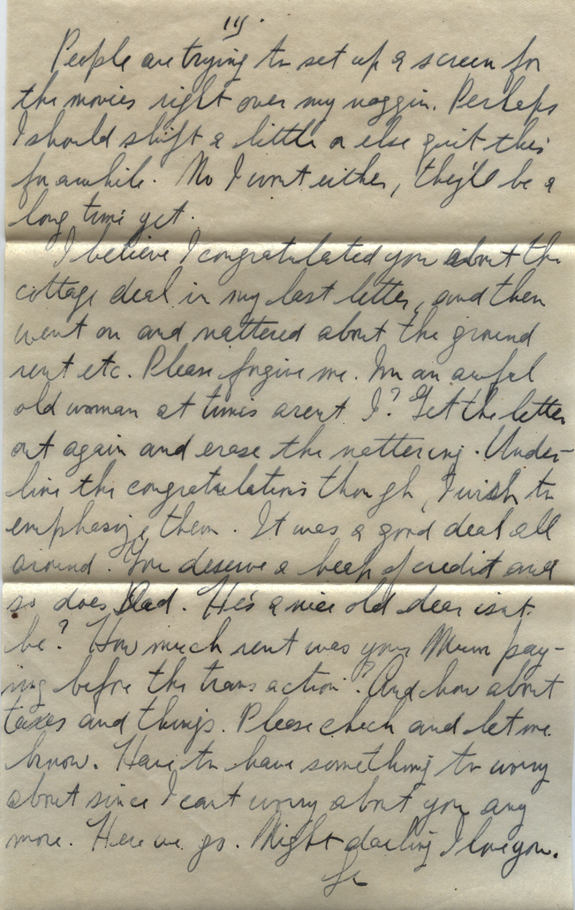 III.
People are trying to set up a screen for
the movies right over my noggin. Perhaps
I should shift a little or else quit this
for awhile. No I wont either, they'll be a
long time yet.
I believe I congratulated you about the
cottage deal in my last letter, and then
went on and nattered about the ground
rent etc. Please forgive me. Im an awful
old woman at times arent I? Get the letter
out again and erase the nattering. Under-
line the congratulations though, I wish to
emphasize them. It was a good deal all
around. You deserve a heap of credit and
so does Dad. He's a nice old dear isnt
he? How much rent was your Mum pay-
ing before the transaction? And how about
taxes and things. Please check and let me
know. Have to have something to worry
about since I cant worry about you any
more. Here we go. Night darling I love you.